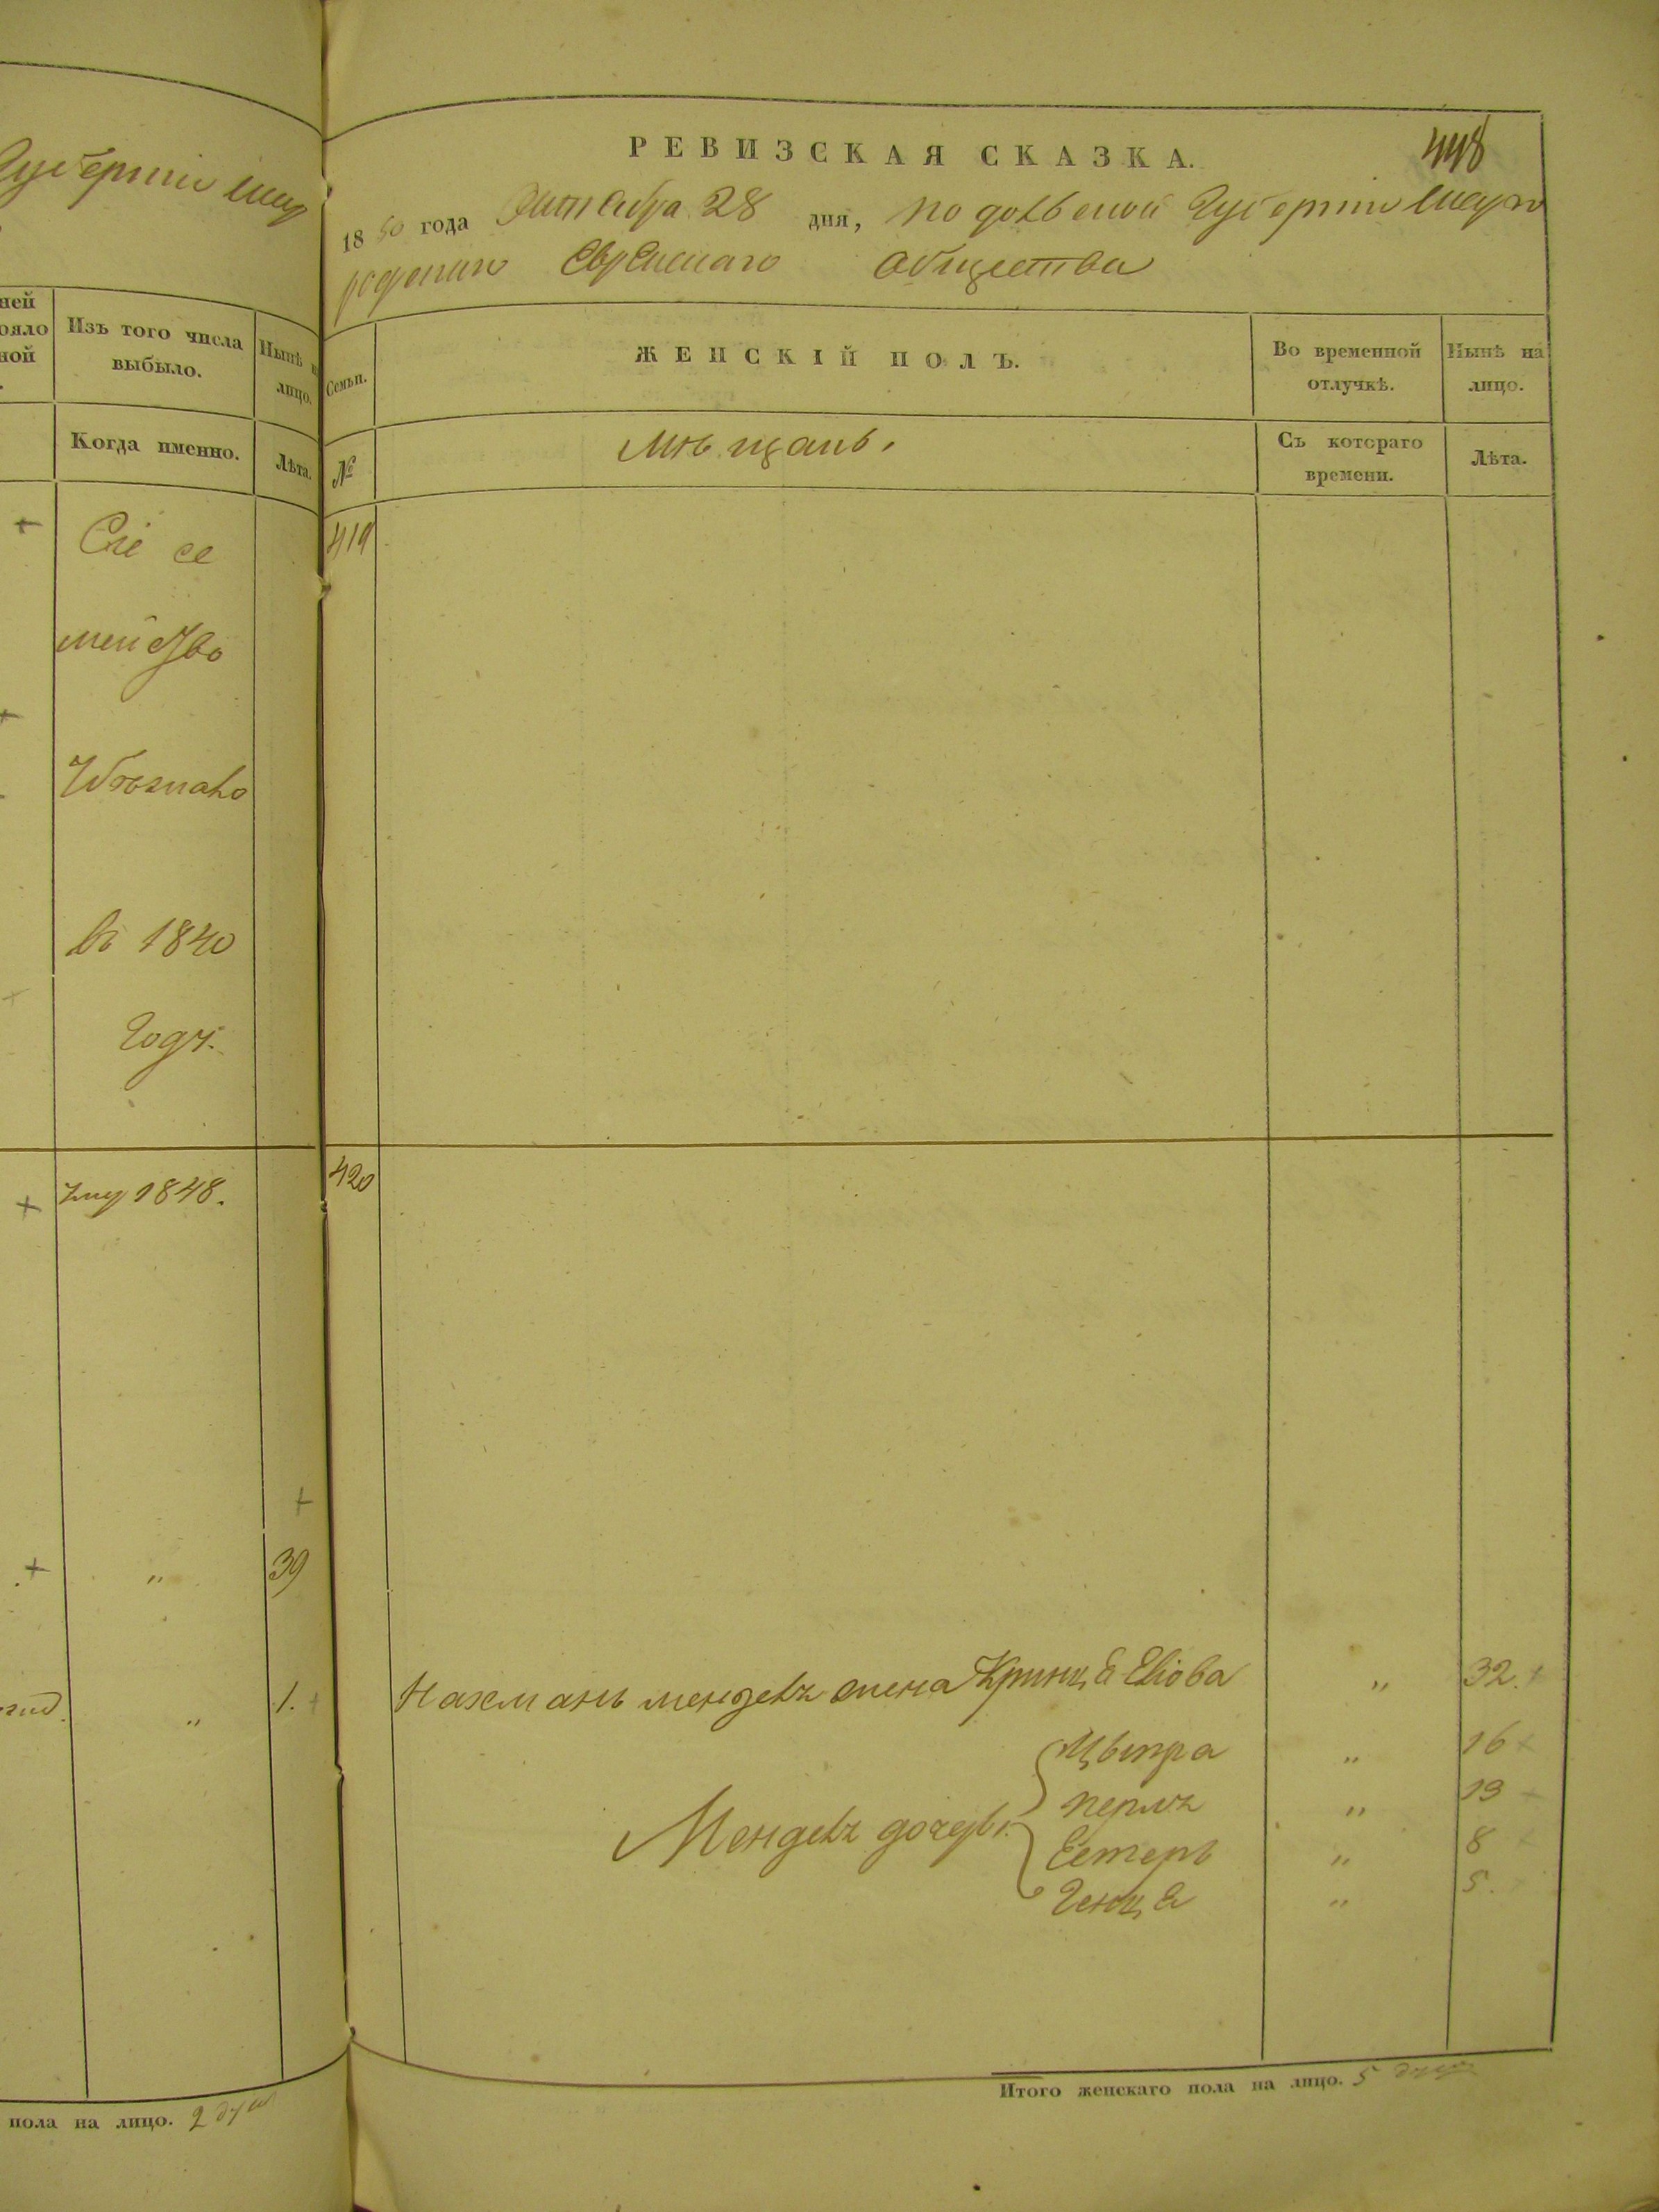 Губерніи
ней
ояло
ной
Изъ того числа
выбыло.
Нынѣ н
лицо.
Когда именно.
Лѣта.
+ Сіе се
мейство
въ 1840
году.
+ 1848.
+
+ " 39
" 1. +
пола на лицо. 2 душ
448
РЕВИЗСКАЯ СКАЗКА.
1850 года Октября 28 дня, Подольской Губерніи
Еврейскаго Общества
Семьи.
ЖЕНСКІЙ ПОЛЪ.
Во временной
отлучкѣ.
Нынѣ на
лицо.
№
Мѣщанъ.
Съ котораго
времени.
Лѣта.
419
420
Нахманъ Менделя жена Кринця Еліова " 32. +
Цыпра " 16 +
Перля " 13 +
Менделя дочери Естеръ " 8 +
Генця " 5.
Итого женскаго пола на лицо. 5 душ